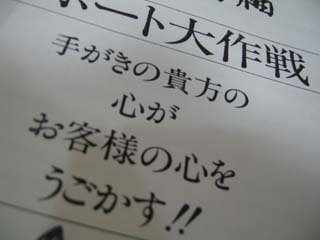 ポート大作戦
手がきの貴方の
心が
お客様の心を
うごかす!!